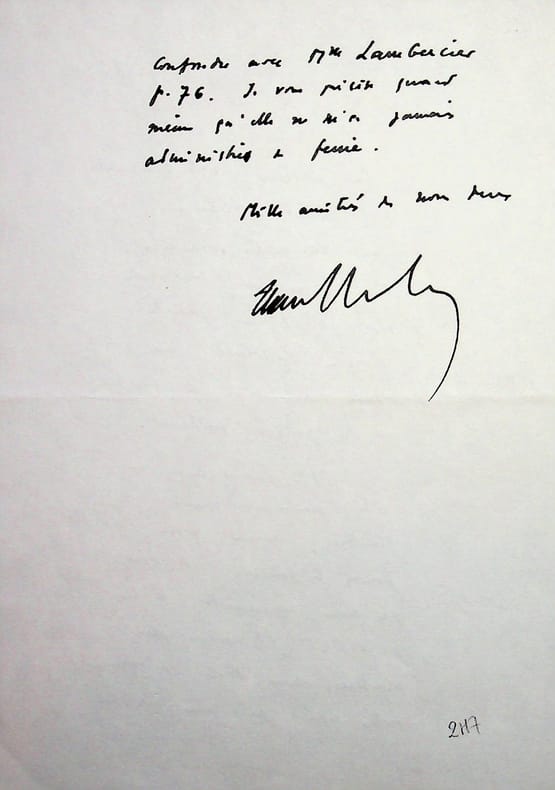 confondre avec Mlle Lambercier
p. 76. Je vous précise quand
même qu'elle ne m'a jamais
administré de fessée.
Mille amitiés de nous deux
2117